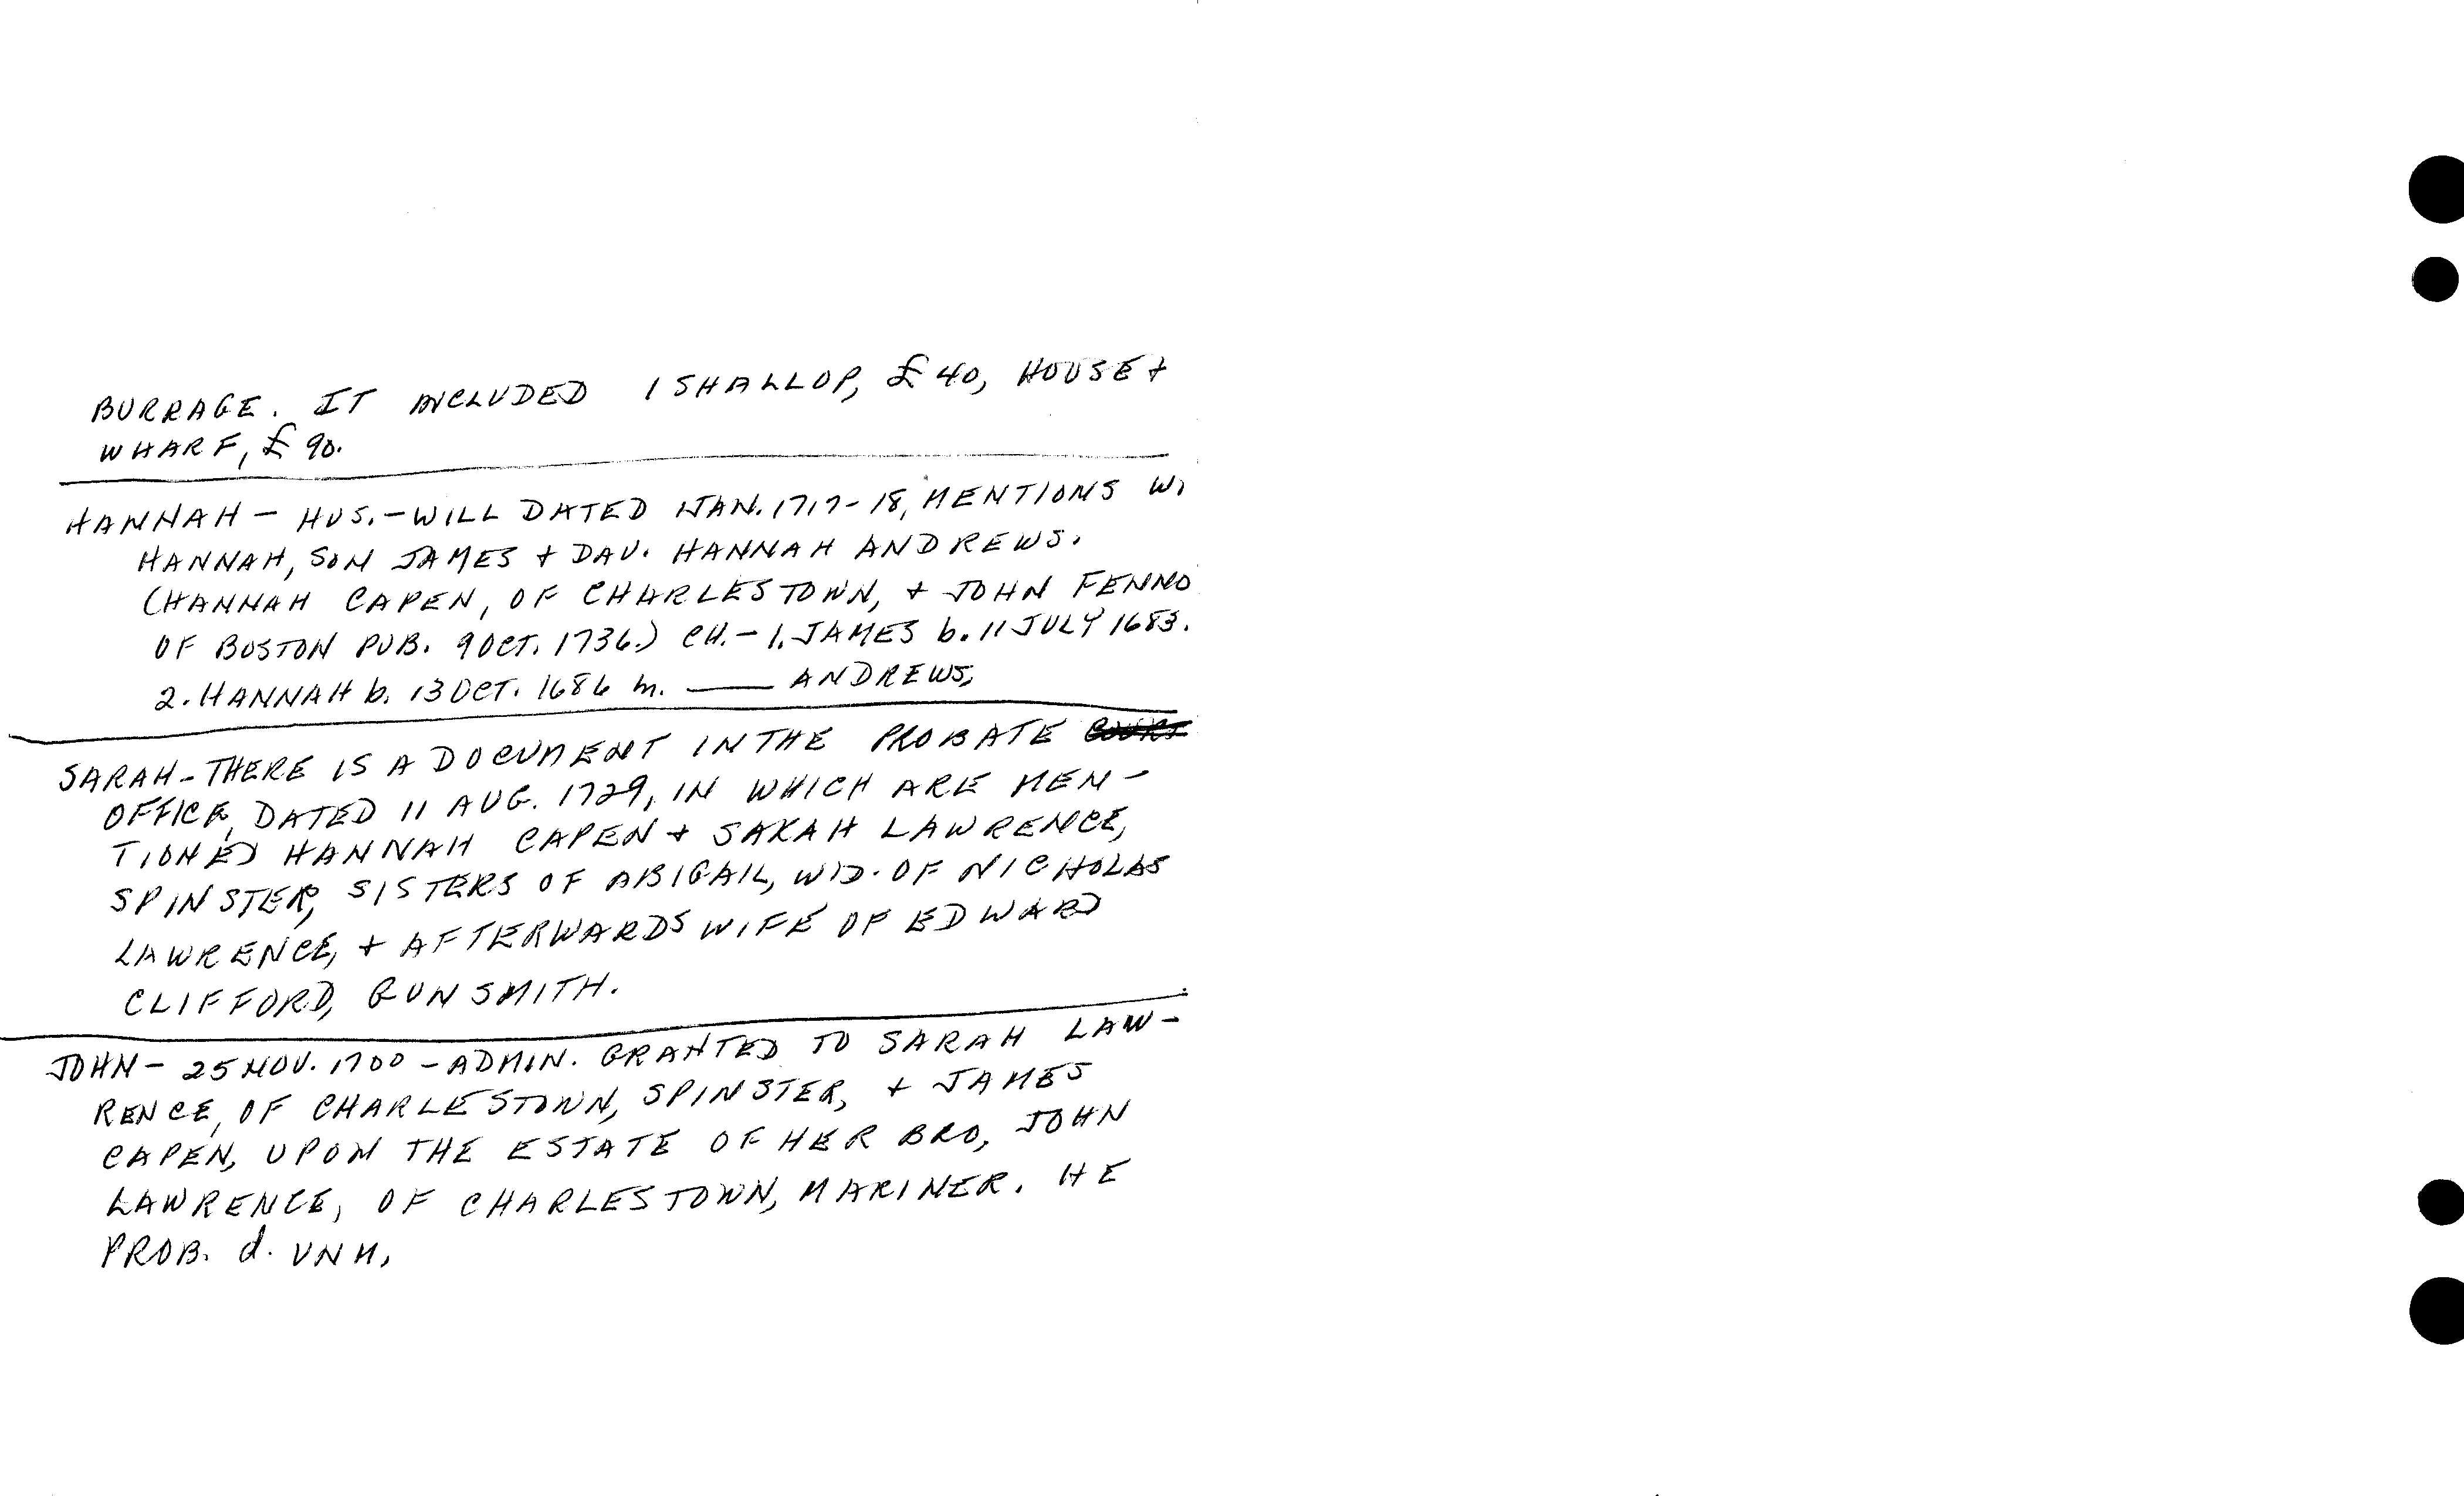 BURRAGE. IT INCLUDED 1 SHALLOP, £40, HOUSE +
WHARF, £90.
HANNAH - HUS. - WILL DATED JAN. 1717-18, MENTIONS W.
HANNAH, SON JAMES + DAU. HANNAH ANDREWS.
(HANNAH CAPEN, OF CHARLESTOWN, + JOHN FENNO
OF BOSTON PUB. 9 OCT. 1736.) CH. - 1. JAMES b. 11 JULY 1683.
2. HANNAH b. 13 OCT. 1686 m. —— ANDREWS,
SARAH - THERE IS A DOCUMENT IN THE PROBATE COURT
OFFICE, DATED 11 AUG. 1729, IN WHICH ARE MEN-
TIONED HANNAH CAPEN + SARAH LAWRENCE,
SPINSTER, SISTERS OF ABIGAIL, WID. OF NICHOLAS
LAWRENCE, + AFTERWARDS WIFE OF EDWARD
CLIFFORD, GUNSMITH.
JOHN - 25 NOV. 1700 - ADMIN. GRANTED TO SARAH LAW-
RENCE, OF CHARLESTOWN, SPINSTER, + JAMES
CAPEN, UPON THE ESTATE OF HER BRO, JOHN
LAWRENCE, OF CHARLESTOWN, MARINER. HE
PROB. d. UNM,